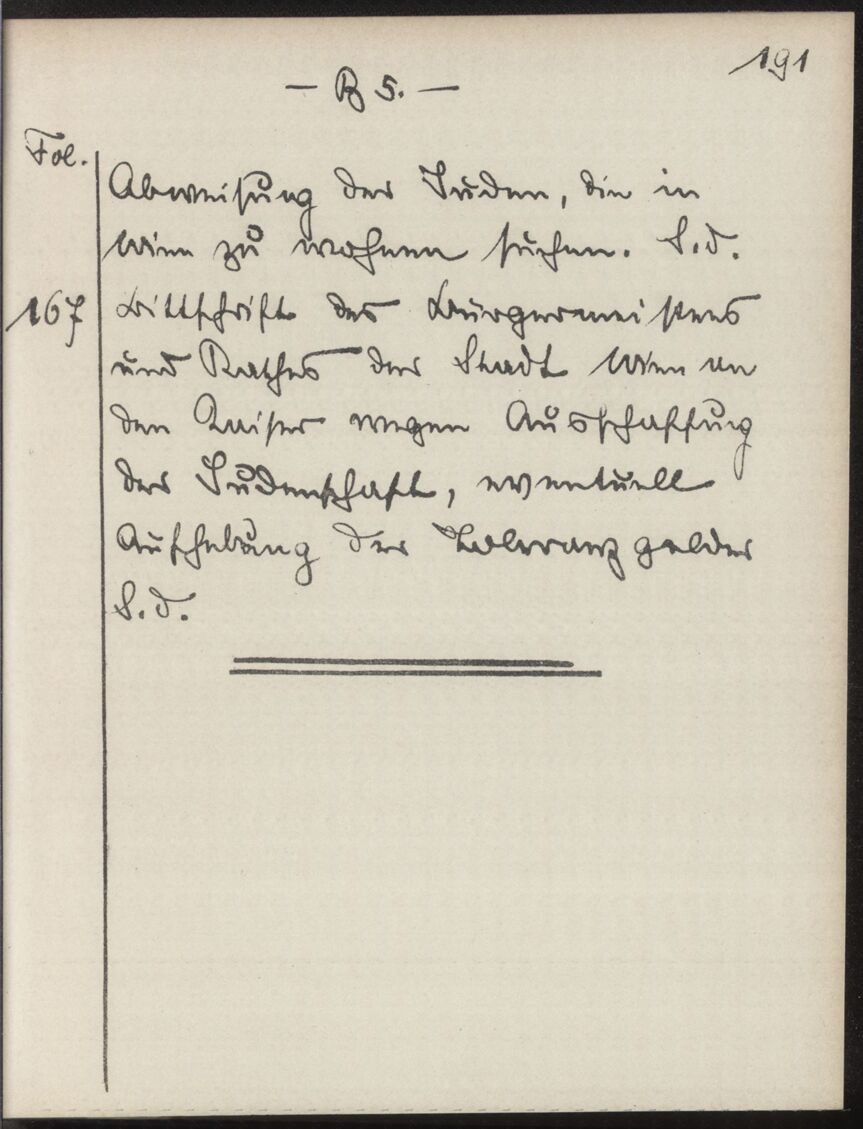 191
- B 5. -
Fol.
Abweisung der Juden, die in
Wien zu wohnen suchen. S.d.
167 Bittschrift des Bürgermeisters
und Rathes der Stadt Wien an
den Kaiser wegen Ausschaffung
der Judenschaft, eventuell
Aufhebung der Toleranzgelder
S.d.